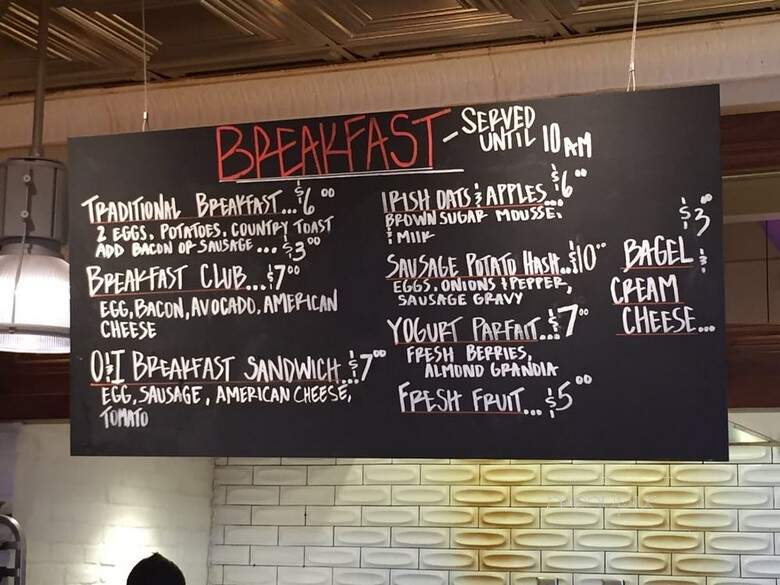 BREAKFAST - SERVED UNTIL 10 AM
TRADITIONAL BREAKFAST... $6.00
2 EGGS, POTATOES, COUNTRY TOAST
ADD BACON OR SAUSAGE... $3.00
BREAKFAST CLUB... $7.00
EGG, BACON, AVOCADO, AMERICAN
CHEESE
O&I BREAKFAST SANDWICH... $7.00
EGG, SAUSAGE, AMERICAN CHEESE,
TOMATO
IRISH OATS & APPLES... $6.00
BROWN SUGAR MOUSSE
& MILK
SAUSAGE POTATO HASH... $10.00
EGGS, ONIONS & PEPPER,
SAUSAGE GRAVY
YOGURT PARFAIT... $7.00
FRESH BERRIES,
ALMOND GRANOLA
FRESH FRUIT... $5.00
$3.00
BAGEL &
CREAM
CHEESE...